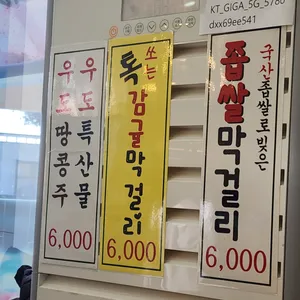 KT_GIGA_5G_5780
dxx69ee541
우도특산물
우도땅콩주
6,000
쏘는
톡감귤막걸리
6,000
국산찹쌀로빚은
좁쌀막걸리
6,000